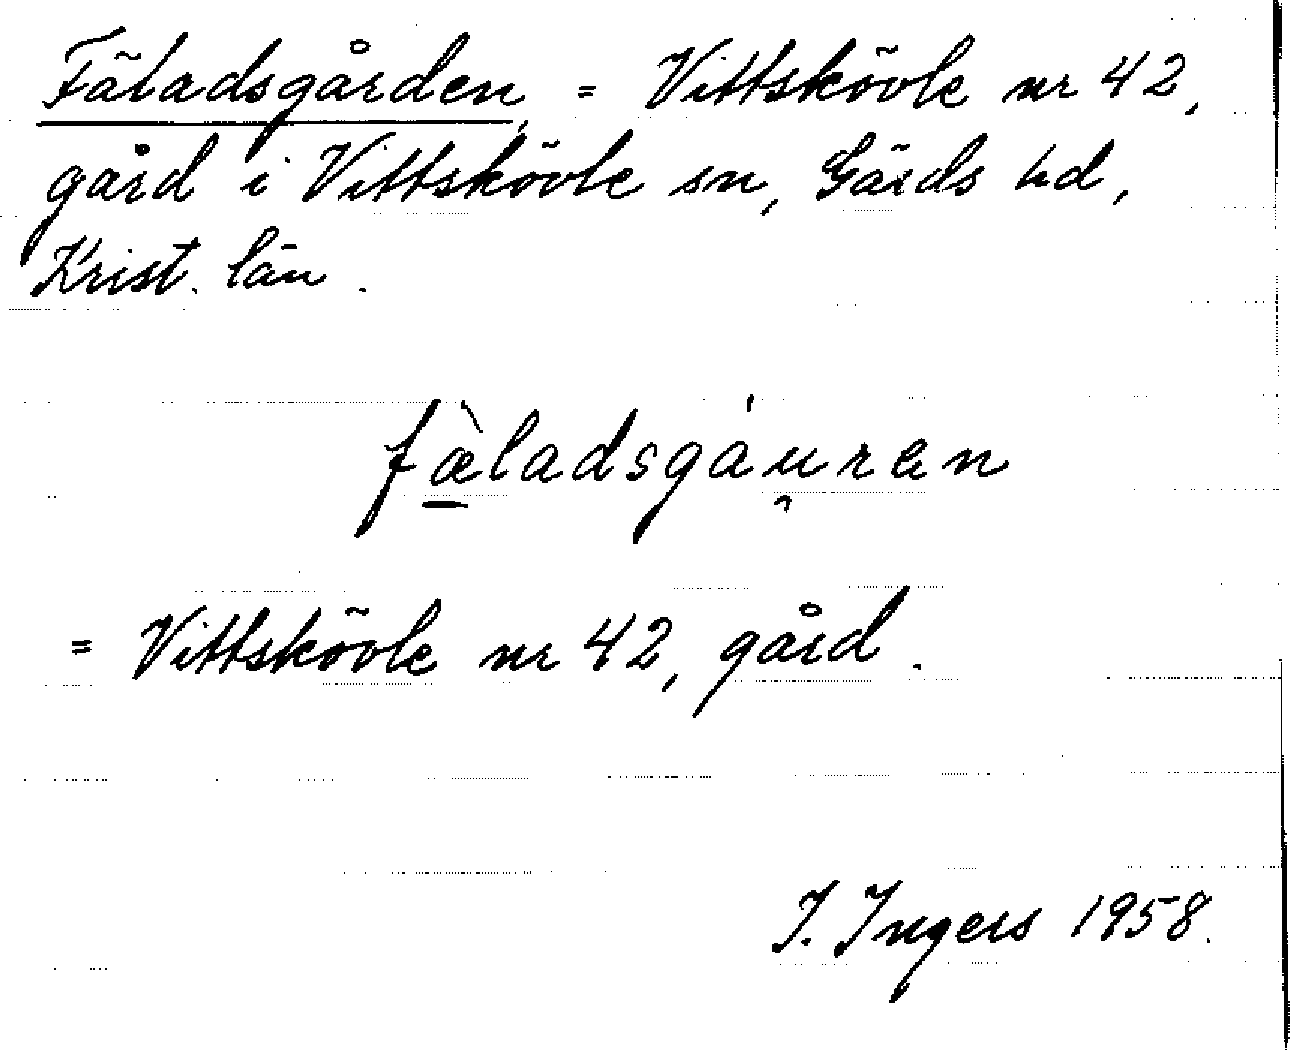 Fäladsgården, = Vittskövle nr 42,
gård i Vittskövle sn, Gärds hd,
Krist. län.
fæ̀ladsgáu̯ren
= Vittskövle nr 42, gård.
I. Ingers 1958.